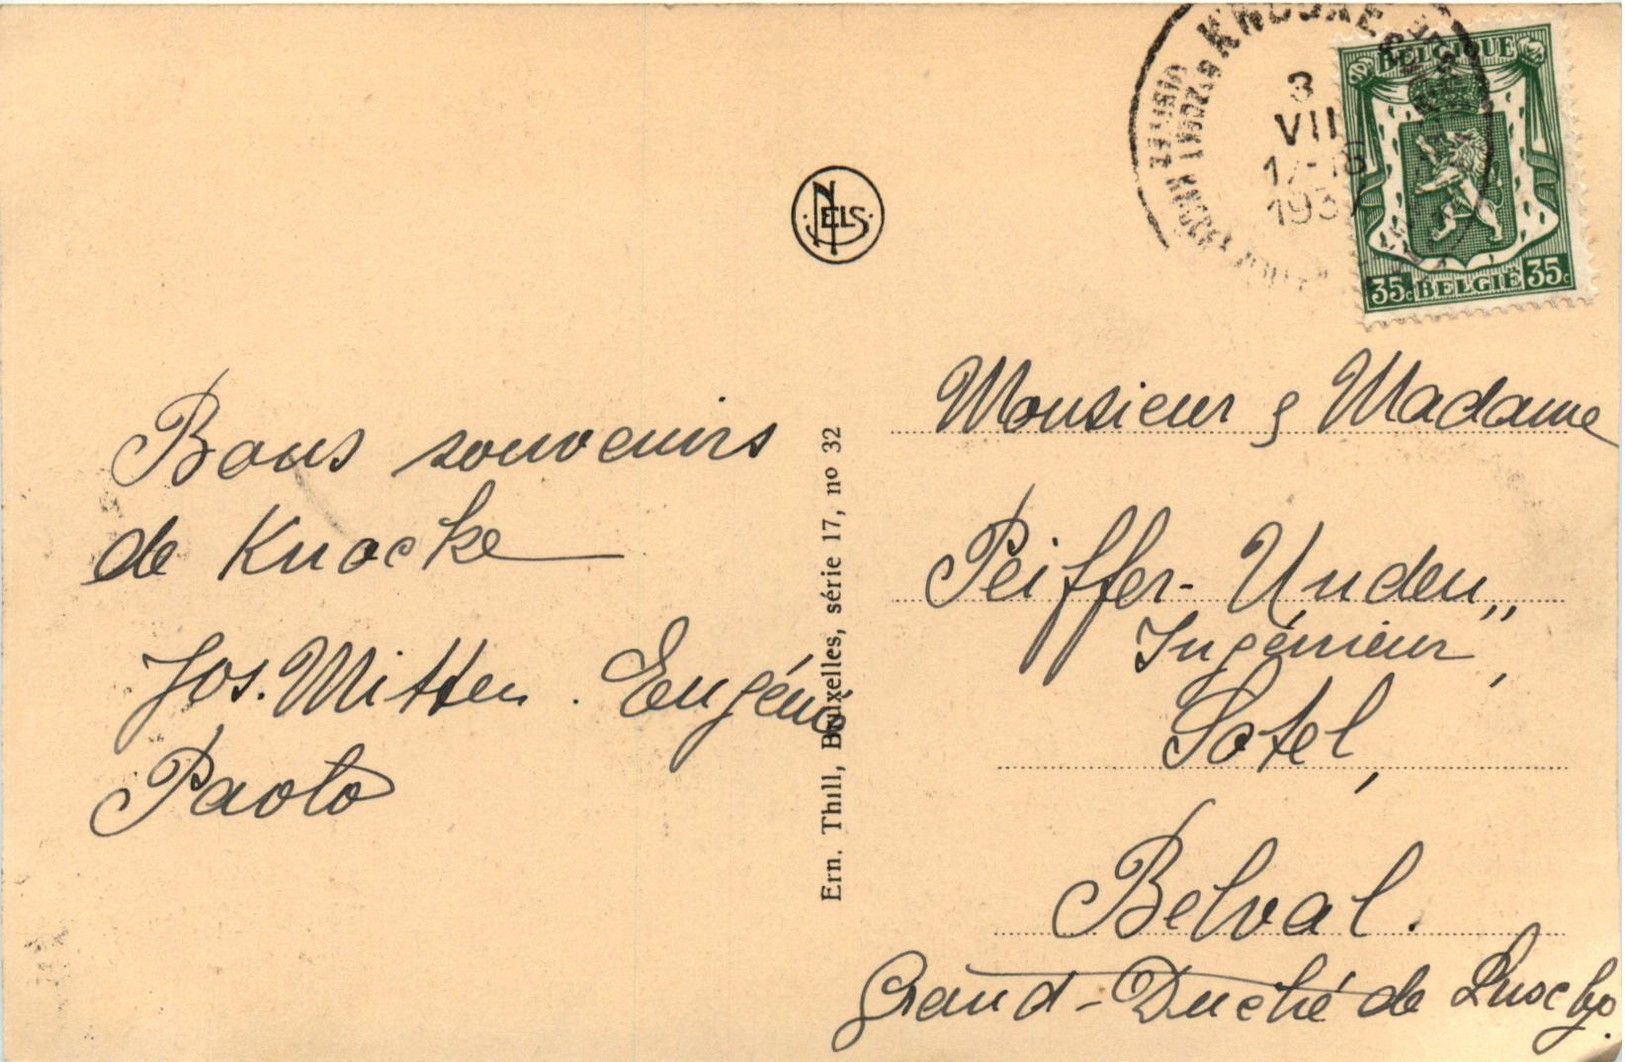 KNOCKE
3
VII
17-18
1937
BELGIQUE
35c BELGIË 35c
NELS
Bons souvenirs
de Knocke
Jos. Mitten. Eugénie
Paolo
Ern. Thill, Bruxelles, série 17, no 32
Monsieur & Madame
Peiffer-Unden,,
Ingénieur,
Sotel,
Belval.
Grand-Duché de Luxbg.